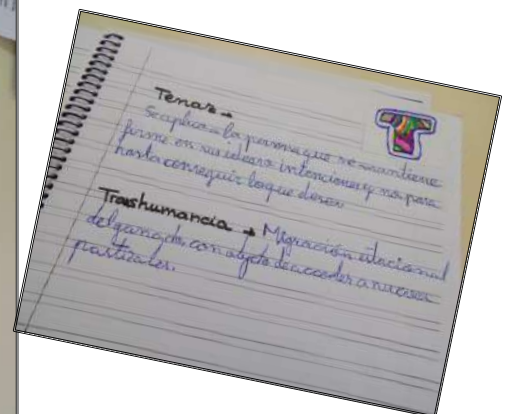 T
Tenaz →
Se aplica a la persona que se mantiene
firme en sus ideas o intenciones y no para
hasta conseguir lo que desea.
Trashumancia → Migración estacional
del ganado, con objeto de acceder a nuevos
pastizales.